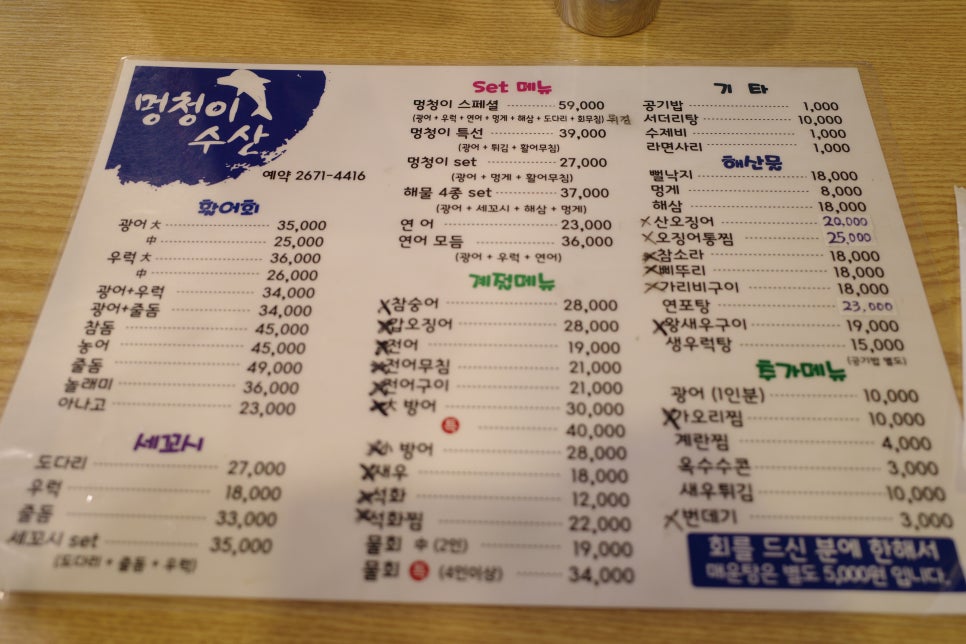 멍청이
수산
예약 2671-4416
활어회
광어 大 35,000
中 25,000
우럭 大 36,000
中 26,000
광어+우럭 34,000
광어+줄돔 34,000
참돔 45,000
농어 45,000
줄돔 49,000
놀래미 36,000
아나고 23,000
세꼬시
도다리 27,000
우럭 18,000
줄돔 33,000
세꼬시 set 35,000
(도다리 + 줄돔 + 우럭)
Set 메뉴
멍청이 스페셜 59,000
(광어 + 우럭 + 연어 + 멍게 + 해삼 + 도다리 + 회무침) 튀김
멍청이 특선 39,000
(광어 + 튀김 + 활어무침)
멍청이 set 27,000
(광어 + 멍게 + 활어무침)
해물 4종 set 37,000
(광어 + 세꼬시 + 해삼 + 멍게)
연 어 23,000
연어 모듬 36,000
(광어 + 우럭 + 연어)
계절메뉴
참숭어 28,000
갑오징어 28,000
전어 19,000
전어무침 21,000
전어구이 21,000
大 방어 30,000
특 40,000
小 방어 28,000
새우 18,000
석화 12,000
석화찜 22,000
물회 中 (2인) 19,000
물회 특 (4인이상) 34,000
기 타
공기밥 1,000
서더리탕 10,000
수제비 1,000
라면사리 1,000
해산물
뻘낙지 18,000
멍게 8,000
해삼 18,000
산오징어 20,000
오징어통찜 25,000
참소라 18,000
삐뚜리 18,000
가리비구이 18,000
연포탕 23,000
왕새우구이 19,000
생우럭탕 15,000
(공기밥 별도)
추가메뉴
광어 (1인분) 10,000
가오리찜 10,000
계란찜 4,000
옥수수콘 3,000
새우튀김 10,000
번데기 3,000
회를 드신 분에 한해서
매운탕은 별도 5,000원 입니다.